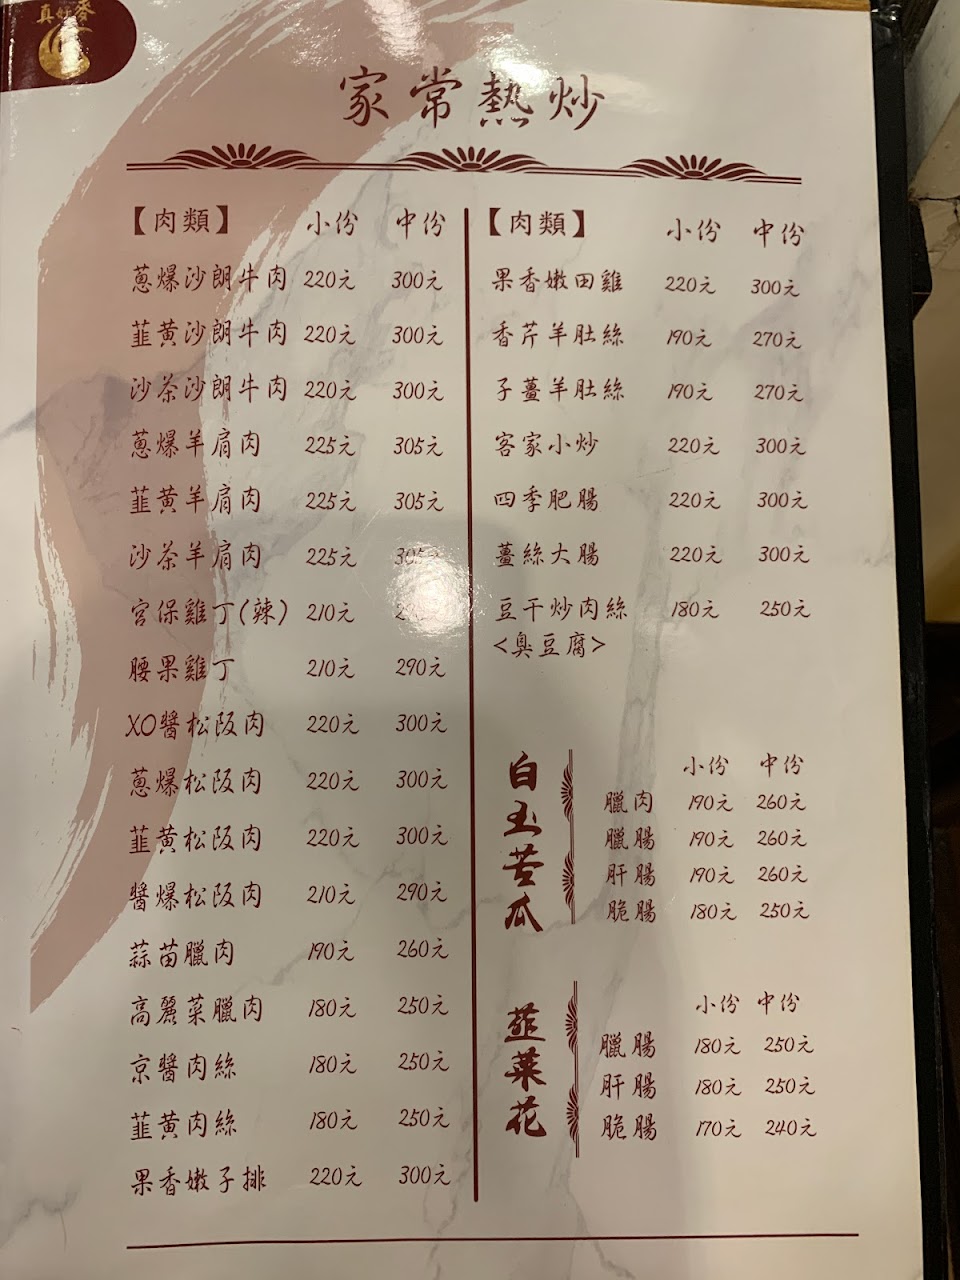 真好香
家常熱炒
【肉類】 小份 中份
蔥爆沙朗牛肉 220元 300元
韮黃沙朗牛肉 220元 300元
沙茶沙朗牛肉 220元 300元
蔥爆羊肩肉 225元 305元
韮黃羊肩肉 225元 305元
沙茶羊肩肉 225元 305元
宮保雞丁(辣) 210元
腰果雞丁 210元 290元
XO醬松阪肉 220元 300元
蔥爆松阪肉 220元 300元
韮黃松阪肉 220元 300元
醬爆松阪肉 210元 290元
蒜苗臘肉 190元 260元
高麗菜臘肉 180元 250元
京醬肉絲 180元 250元
韮黃肉絲 180元 250元
果香嫩子排 220元 300元
【肉類】 小份 中份
果香嫩田雞 220元 300元
香芹羊肚絲 190元 270元
子薑羊肚絲 190元 270元
客家小炒 220元 300元
四季肥腸 220元 300元
薑絲大腸 220元 300元
豆干炒肉絲 180元 250元
<臭豆腐>
白玉苦瓜
小份 中份
臘肉 190元 260元
臘腸 190元 260元
肝腸 190元 260元
脆腸 180元 250元
韮菜花
小份 中份
臘腸 180元 250元
肝腸 180元 250元
脆腸 170元 240元